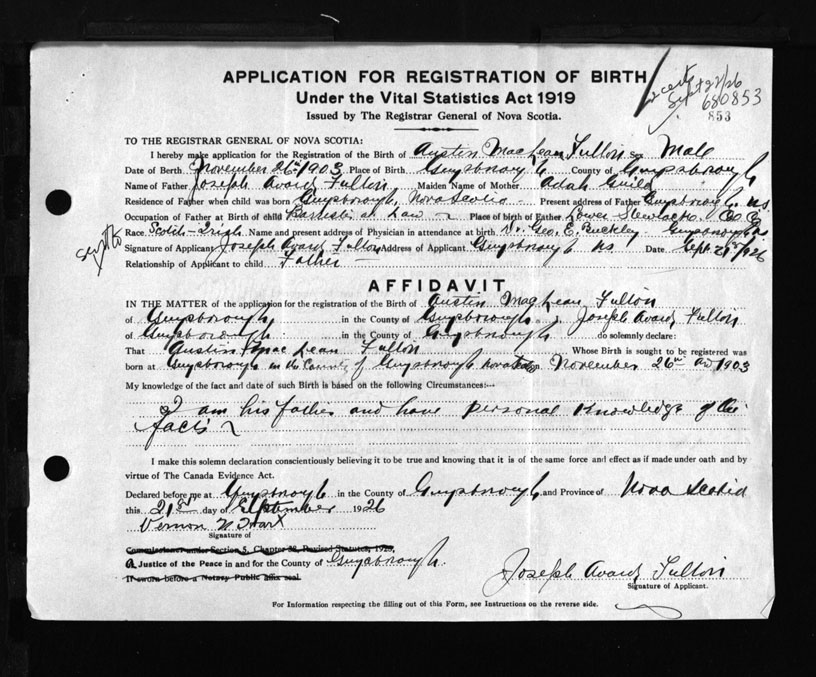 APPLICATION FOR REGISTRATION OF BIRTH
Under the Vital Statistics Act 1919
Issued by The Registrar General of Nova Scotia.
Sept 21/26
680853
853
TO THE REGISTRAR GENERAL OF NOVA SCOTIA:
I hereby make application for the Registration of the Birth of Austin MacLean Fulton Sex Male
Date of Birth November 26th 1903 Place of Birth Guysborough County of Guysborough
Name of Father Joseph Avard Fulton Maiden Name of Mother Adah Guild
Residence of Father when child was born Guysborough, Nova Scotia Present address of Father Guysborough, N.S.
Occupation of Father at Birth of child Barrister at Law Place of birth of Father Lower Stewiacke
Race Scotch-Irish Name and present address of Physician in attendance at birth Dr. Geo. E. Buckley Guysborough
Signature of Applicant Joseph Avard Fulton Address of Applicant Guysborough N.S. Date Sept 21st/1926
Relationship of Applicant to child Father
AFFIDAVIT
IN THE MATTER of the application for the registration of the Birth of Austin MacLean Fulton
of Guysborough, in the County of Guysborough, I Joseph Avard Fulton
of Guysborough, in the County of Guysborough do solemnly declare:
That Austin MacLean Fulton Whose Birth is sought to be registered was
born at Guysborough in the County of Guysborough Nova Scotia on November 26th AD 1903
My knowledge of the fact and date of such Birth is based on the following Circumstances:—
I am his father and have personal knowledge of the
facts
I make this solemn declaration conscientiously believing it to be true and knowing that it is of the same force and effect as if made under oath and by
virtue of The Canada Evidence Act.
Declared before me at Guysborough in the County of Guysborough and Province of Nova Scotia
this 21st day of September 1926
Vernon
Signature of
Commissioner under Section 5, Chapter 38, Revised Statutes, 1923,
A Justice of the Peace in and for the County of Guysborough.
If sworn before a Notary Public affix seal.
Joseph Avard Fulton
Signature of Applicant.
For Information respecting the filling out of this Form, see Instructions on the reverse side.